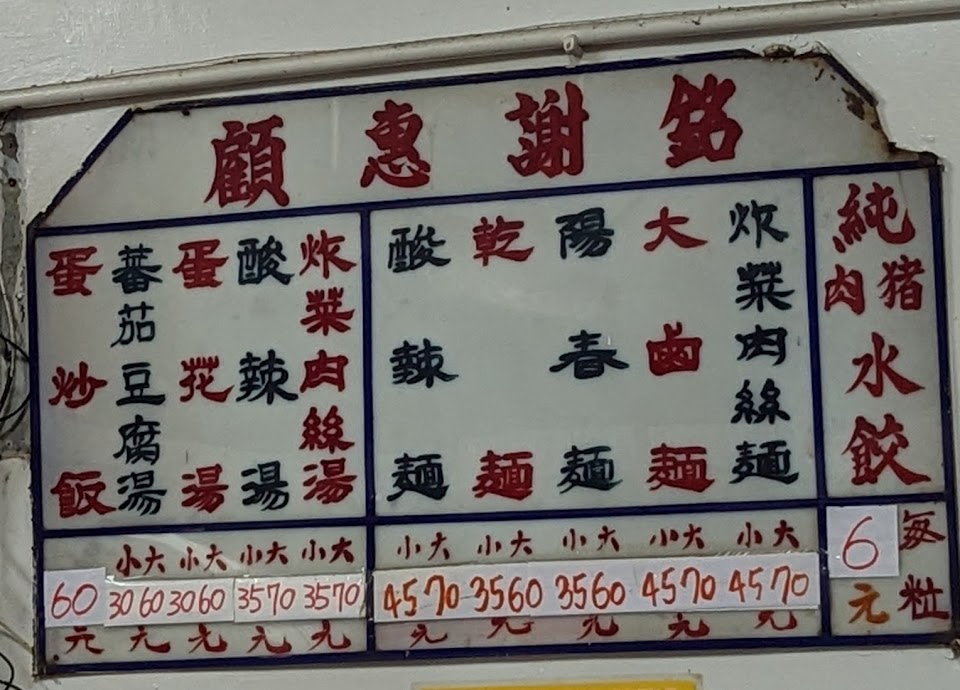 銘謝惠顧
純猪肉水餃
每粒6元
炸菜肉絲麵
小大
45 70元
大鹵麵
小大
45 70元
陽春麵
小大
35 60元
乾麵
小大
35 60元
酸辣麵
小大
45 70元
炸菜肉絲湯
小大
35 70元
酸辣湯
小大
35 70元
蛋花湯
小大
30 60元
蕃茄豆腐湯
小大
30 60元
蛋炒飯
60元